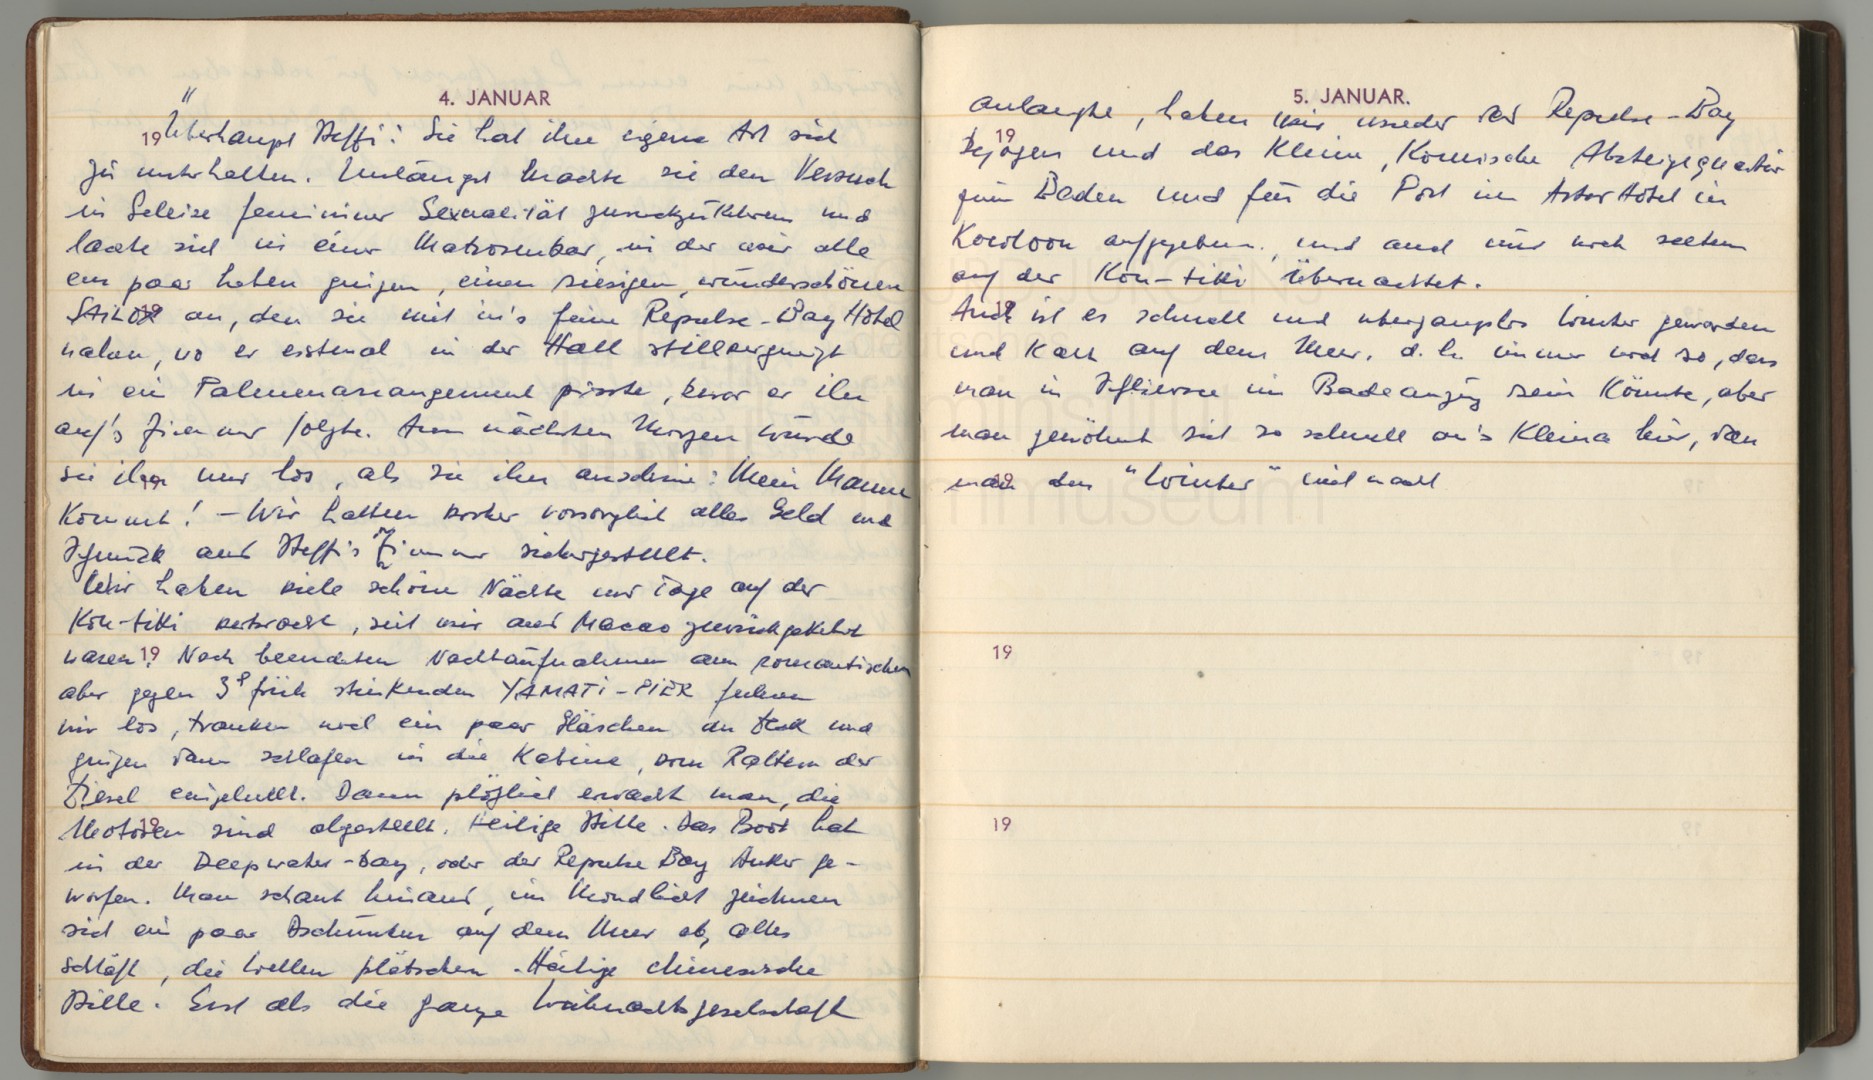 4. JANUAR
"
19 Überhaupt Steffi: Sie hat ihre eigene Art sich
zu unterhalten. Unlängst machte sie den Versuch
in Geleise femininer Sexualität zurückzukehren und
lachte sich in einer Matrosenbar, in der wir alle
ein paar heben gingen, einen riesigen, wunderschönen
Sailor an, den sie mit in's feine Repulse-Bay Hotel
nahm, wo er erstmal in der Hall stillvergnügt
in ein Palmenarrangement pisste, bevor er ihr
auf's Zimmer folgte. Am nächsten Morgen wurde
sie ihn nur los, als sie ihn anschrie: Mein Mann
kommt! – Wir hatten vorher vorsorglich alles Geld und
Schmuck aus Steffi's Zimmer sichergestellt.
Wir haben viele schöne Nächte und Tage auf der
Kon-tiki verbracht, seit wir aus Macao zurückgekehrt
waren. 19 Nach beendeten Nachtaufnahmen am romantischen
aber gegen 3 h früh stinkenden YAMATI-PIER fuhren
wir los, tranken noch ein paar Gläschen an Deck und
gingen dann schlafen in die Kabine, vom Rattern der
Diesel eingehüllt. Dann plötzlich erwacht man, die
Motoren sind abgestellt. Heilige Stille. Das Boot hat
in der Deepwater-Bay, oder der Repulse Bay Anker ge-
worfen. Man schaut hinaus, im Mondlicht zeichnen
sich ein paar Dschunken auf dem Meer ab, alles
schläft, die Wellen plätschern. Heilige chinesische
Stille. Erst als die ganze Weihnachtsgesellschaft
5. JANUAR.
anlangte, haben wir wieder das Repulse-Bay
19
bezogen und das kleine, komische Absteigequartier
zum Baden und für die Post im Astor Hotel in
Kowloon aufgegeben. und auch nur noch selten
auf der Kon-tiki übernachtet.
Auch ist es schnell und übergangslos Winter geworden
und kalt auf dem Meer. d.h. immer noch so, dass
man in Schliersee im Badeanzug sein könnte, aber
man gewöhnt sich so schnell an's Klima hier, dass
man den "Winter" mitmacht
19
19